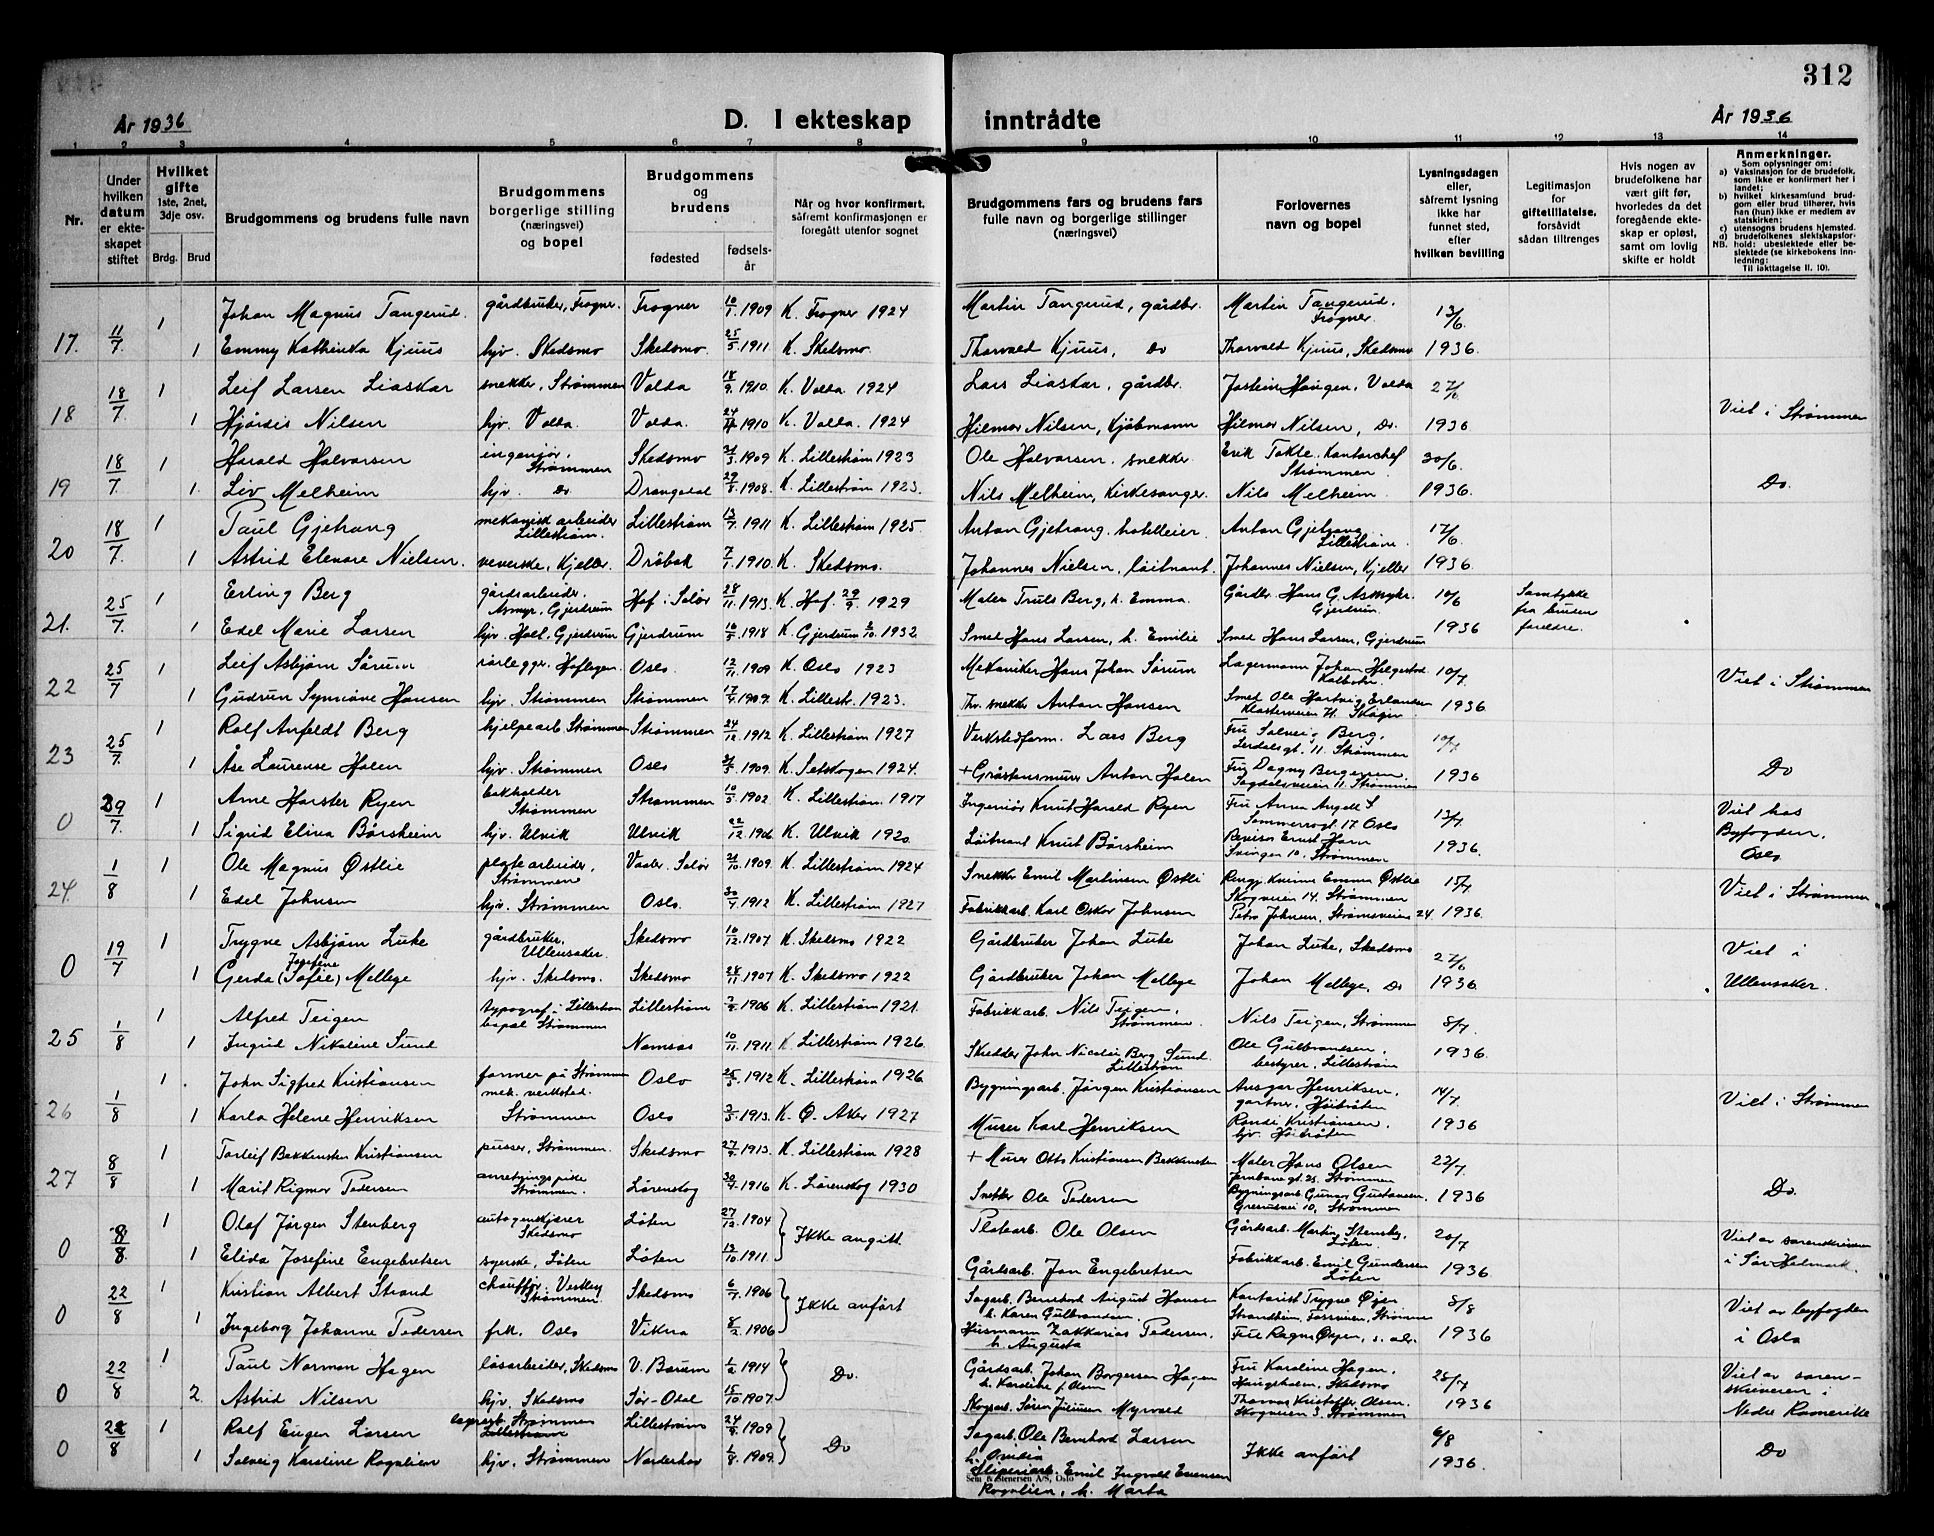 312
År 1936
D. I ekteskap inntrådte
År 1936
1 2 3 4 5 6 7 8 9 10 11 12 13 14
Nr.
Under hvilken datum er ekteskapet stiftet
Hvilket gifte 1ste, 2net, 3dje osv.
Brdg. Brud
Brudgommens og brudens fulle navn
Brudgommens borgerlige stilling (næringsvei) og bopel
Brudgommens og brudens
fødested
fødselsår
Når og hvor konfirmert, såfremt konfirmasjonen er foregått utenfor sognet
Brudgommens fars og brudens fars fulle navn og borgerlige stillinger (næringsvei)
Forlovernes navn og bopel
Lysningsdagen eller, såfremt lysning ikke har funnet sted, efter hvilken bevilling
Legitimasjon for giftetillatelse, forsåvidt sådan tiltrenges
Hvis nogen av brudefolkene har vært gift før, hvorledes da det foregående ekteskap er opløst, samt om lovlig skifte er holdt
Anmerkninger.
Som oplysninger om:
a) Vaksinasjon for de brudefolk, som ikke er konfirmert her i landet;
b) hvilket kirkesamfund brudgom eller brud tilhører, hvis han (hun) ikke er medlem av statskirken;
c) utensogns brudens hjemsted.
d) brudefolkenes slektskapsforhold: ubeslektede eller beslektede (se kirkebokens innledning:
NB.
Til iakttagelse II. 10).
17. 11/7 1 Johan Magnus Tangerud. gårdbruker, Frogner. Frogner 10/1 1909 K. Frogner 1924 Martin Tangerud, gårdbr. Martin Tangerud. Frogner. 13/6.
1 Emmy Kathinka Kjuus hjv. Skedsmo Skedsmo. 25/5 1911 K. Skedsmo. Thorvald Kjuus, Do Thorvald Kjuus, Skedsmo 1936.
18 18/7. 1 Leif Larsen Liaskar snekker, Strømmen Volda 18/9. 1910. K. Volda 1924 Lars Liaskar, gårdbr. Jostein Haugen, Volda 27/6
1 Hjørdis Nilsen hjv. Volda. Volda. 1910 K. Volda. 1924 Hilmar Nilsen, Kjøbmann Hilmar Nilsen, Do. 1936 Viet i Strømmen
19 18/7. 1 Harald Halvorsen ingeniør. Strømmen Skedsmo 1909 K. Lillestrøm 1923 Ole Halvorsen. snekker. Erik Takle. Kontorchef Strømmen. 30/6.
1. Liv Melheim hjv. Do Drangedal 1908. K. Lillestrøm 1923. Nils Melheim, Kirkesanger. Nils Melheim. 1936. Do.
20 18/7. 1 Paul Gjetrang mekanisk arbeider Lillestrøm. Lillestrøm 13/7 1911 K. Lillestrøm 1925. Anton Gjetrang, hotelleier. Anton Gjetrang Lillestrøm. 17/6
1 Astrid Elenore Nielsen. veverske, Kjeller. Drøbak 1910. K. Skedsmo. Johannes Nielsen, løitnant. Johannes Nielsen, Kjeller 1936.
21. 25/7. 1 Erling Berg gårdsarbeider. Asmyr, Gjerdrum Hof i Solør 28/11 1913. K. Hof. 29/9. 1929 Maler Truls Berg, h. Emma. Gårdbr. Hans G. Asmyhr. Gjerdrum. 10/6 Samtykke fra bruden foreldre.
1 Edel Marie Larsen hjv. Holt, Gjerdrum Gjerdrum 1918 K. Gjerdrum 1932. Smed Hans Larsen, h. Emilie Smed Hans Larsen, Gjerdrum 1936
22 25/7 1 Leif Asbjørn Sørum rørlegger, Oslo. 12/11 1909 K. Oslo 1923 Mekaniker Hans Johan Sørum Lagermann Johan 10/7.
1 Gudrun Synnøve Hansen hjv. Strømmen Strømmen 1909. K. Lillestr. 1923. snekker Anton Hansen Smed Ole Hartvig Erlandsen 1936. Viet i Strømmen
23 25/7. 1 Rolf Anfeldt Berg hjelpearb Strømmen Strømmen 24/12 1912 K. Lillestrøm 1927 Verkstedform. Lars Berg Fru Solveig Berg, 11. Strømmen 10/7
1 Åse Laurense Holen hjv. Strømmen Oslo 1909. K. Setskogen 1924. + Gråstensmurer Anton Holen Fru Dagny Bergersen. Sagdalsveien 11 Strømmen 1936 Do
0 29/7. 1 Arne Harster Ryen bokholder Strømmen Strømmen 10/5 1902. K. Lillestrøm 1917 Ingeniør Knut Harald Ryen Fru Anna Sommerrogt 17 Oslo 13/7
1 Sigrid Elina Børsheim hjv. Ulvik Ulvik 22/12 1906 K. Ulvik 1920. Løitnant Knut Børsheim Revisor Ernst Horn Svingen 10. Strømmen 1936. Viet hos Byfogden, Oslo
24. 1/8 1 Ole Magnus Østlie platearbeider, Strømmen Vaaler. Solør 21/10 1909. K. Lillestrøm 1924 Snekker Emil Martinsen Østli Emma Østlie Skogveien 14. Strømmen 15/7
1 Edel Johnsen hjv. Strømmen Oslo. 1912 K. Lillestrøm 1927 Fabrikkarb. Karl Oskar Johnsen Petra Johnsen, Strømsveien 24. 1936. Viet i Strømmen
0 19/7 1 Trygve Asbjørn Luke gårdbruker. Ullensaker. Skedsmo 10/12. 1907 K. Skedsmo 1922 Gårdbruker Johan Luke Johan Luke, Skedsmo 27/6
1 Gerda (Sofie) Josefine Mellege hjv. Skedsmo. Skedsmo 28/11 1907 K. Skedsmo 1922 Gårdbruker Johan Mellege Johan Mellege, Do 1936. Viet i Ullensaker.
25 1/8 1 Alfred Teigen typograf i Lillestrøm bopæl Strømmen Lillestrøm 1906 K. Lillestrøm 1921. Fabrikkarb. Nils Teigen, Strømmen. Nils Teigen, Strømmen 8/7.
1 Ingrid Nikoline Sund Namsos 10/11. 1911. K. Lillestrøm 1926. Skredder John Nicolai Berg Sund. Lillestrøm Ole Gulbrandsen, bestyrer, Lillestrøm 1936.
26 1/8 1. John Sigfred Kristiansen former på Strømmen mek. verksted. Oslo 1912 K. Lillestrøm 1926 Bygningsarb. Jørgen Kristiansen Ansgar Henriksen. gartner. Høibråten 14/7.
1 Karla Helene Henriksen Strømmen Oslo 1913. K. Ø. Aker 1927 Murer Karl Henriksen Randi Kristiansen. hjv. Høibråten 1936 Viet i Strømmen
27 8/8 1 Torleif Bekkensten Kristiansen pusser, Strømmen. Skedsmo 1913. K. Lillestrøm 1928 + Murer Otto Kristiansen Bekkensten Maler Hans Olsen Jernbanegt. 25. Strømmen 22/7.
1 Marit Rigmor Pedersen anretningspike Strømmen. Lørenskog 1916 K. Lørenskog 1930 Snekker Ole Pedersen Bygningsarb. Gunnar Gustavsen, 10, Strømmen 1936 Do.
0 8/8. 1 Olaf Jørgen Stenberg autogenskjærer Skedsmo Løten 27/12. 1904 Ikke angitt Platearb. Ole Olsen Gårdsarb. Martin Stensby. Løten. 20/7
1 Elida Josefine Engebretsen syerske, Løten Løten 13/10 1911. Gårdsarb. Jon Engebretsen Fabrikkarb. Emil Gundersen Løten 1936. Viet av sorenskriveren i Sør Hedmark.
0 22/8 1 Kristian Albert Strand chauffør. Vestby Strømmen Skedsmo 1906 Ikke anført Sagarb. Bernhard August Hansen h. Karen Gulbrandsen. Kontorist Trygve Øyen Strandheim, Fossveien, Strømmen 8/8
1 Ingeborg Johanne Pedersen frk. Oslo Vikna 8/2 1906 Husmann Zakkarias Pedersen. h. Augusta Frue Ragna Øyen, s. adr. 1936 Viet av byfogden i Oslo
0 22/8 1 Paul Norman Hagen løsarbeider, Skedsmo V. Bærum 1914 Do. Gårdsarb. Johan Borgersen Hagen h. Karoline f. Olsen Fru Karoline Hagen, Haugsholm, Skedsmo 28/7
2. Astrid Nilsen hjv. Skedsmo Sør-Odal 15/10 1907. Skogsarb. Søren Jensen Myrvold Thomas Kristoffer Olsen. Skogveien 3. Strømmen 1936 Viet av sorenskriveren i Nedre Romerike
0 22/8 1 Rolf Eugen Larsen lagerarb. Strømmen Lillestrøm Lillestrøm 1909 Do Sagarb. Ole Bernhard Larsen h. Ovidia Ikke anført 6/8
1 Solveig Karoline Rogalien hjv. Strømmen Norderhov 1/8. 1909. Sliperiarb. Emil Ingvald Evensen Rogalien, h. Marta 1936. Do
Sem & Stenersen A/S, Oslo